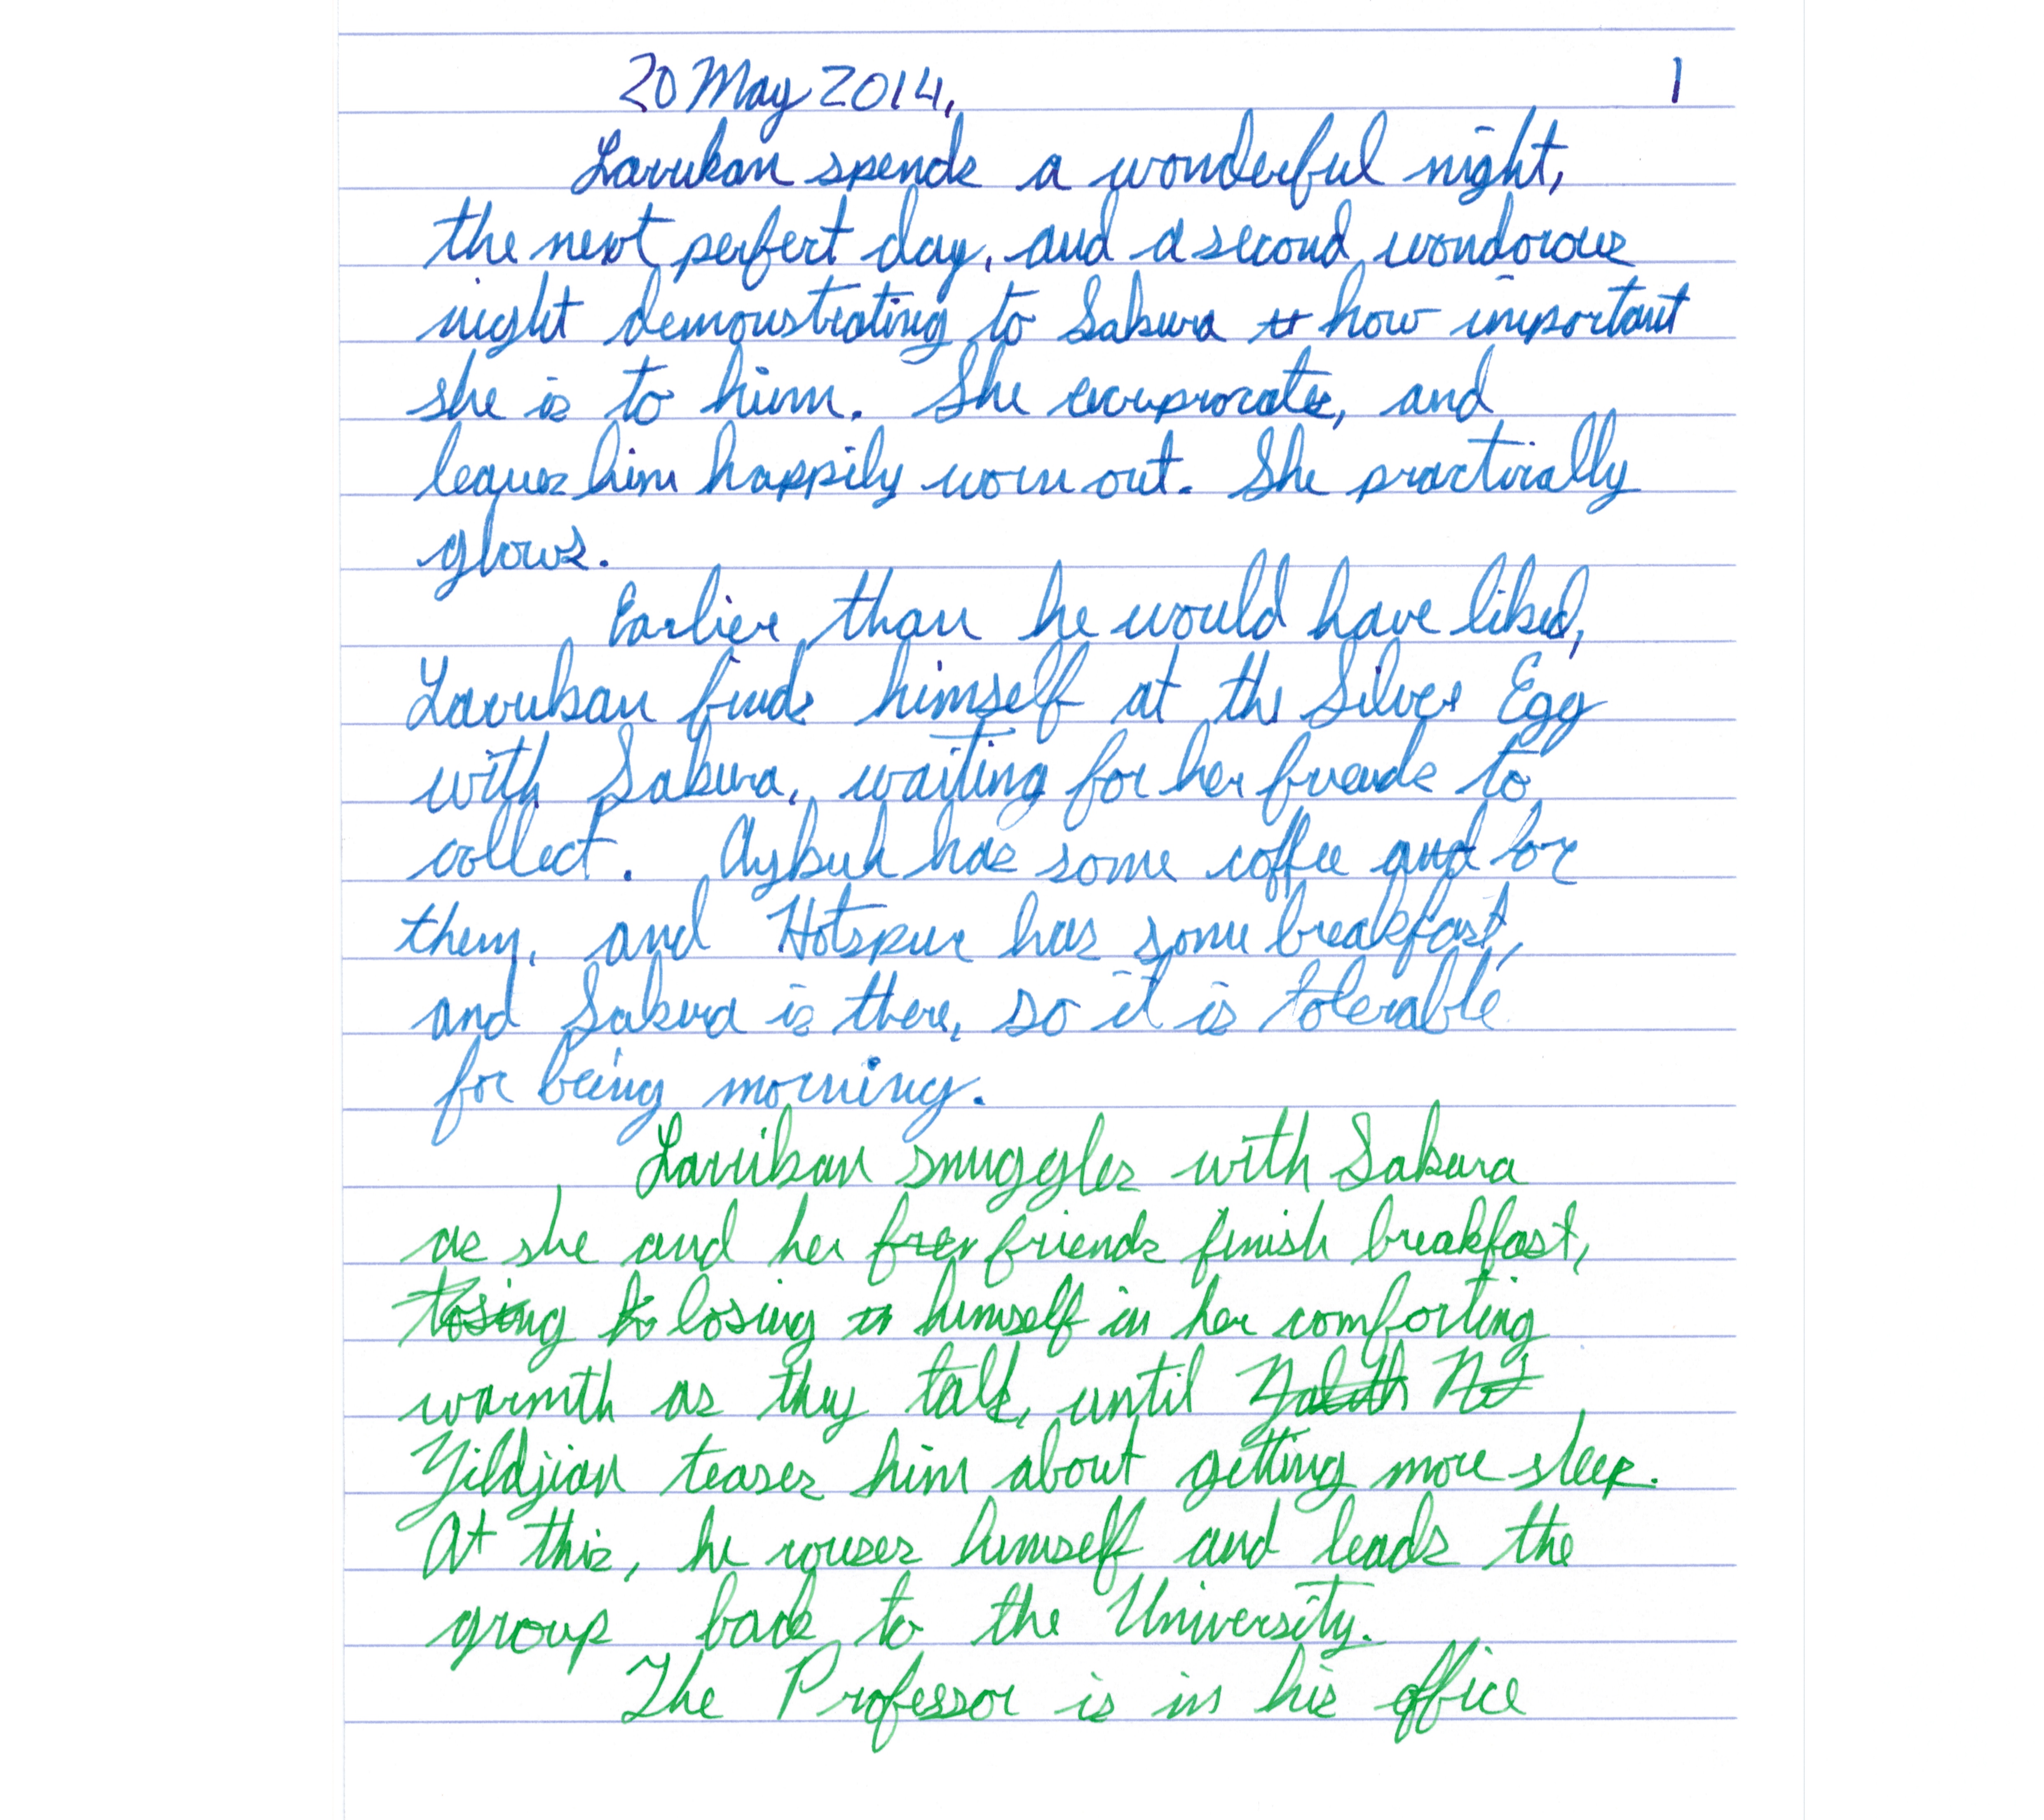 20 May 2014. 1
Larukan spends a wonderful night,
the next perfect day, and a second wondorous
night demonstrating to Sakura how important
she is to him. She reciprocates, and
leaves him happily worn out. She practically
glows.
Earlier than he would have liked,
Larukan finds himself at the Silver Egg
with Sakura, waiting for her friends to
collect. Aybuk has some coffee and for
them, and Hotspur has some breakfast,
and Sakura is there, so it is tolerable
for being morning.
Larukan snuggles with Sakura
as she and her frer friends finish breakfast,
losing himself in her comforting
warmth as they talk, until
Yildjian teases him about getting more sleep.
At this, he rouses himself and leads the
group back to the University.
The Professor is in his office